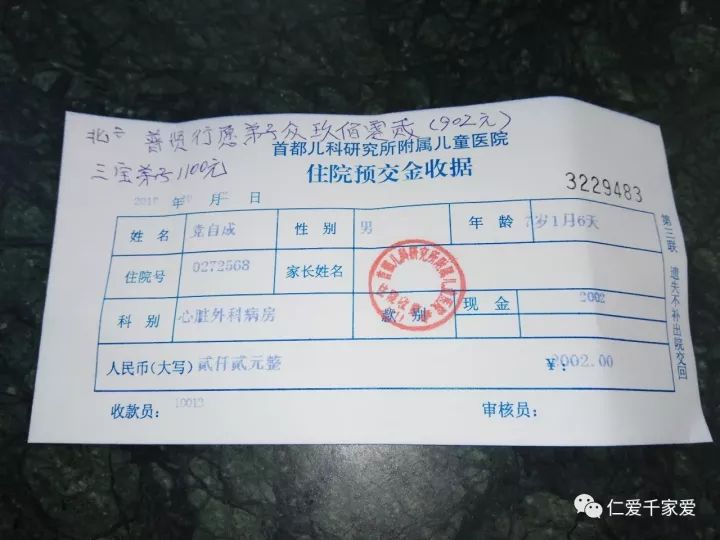 普贤行愿弟子众玖佰零贰(902元)
三宝弟子1100元
首都儿科研究所附属儿童医院
住院预交金收据
3229483
年 月 日
姓 名 党自成 性 别 男 年 龄 7岁1月6天
住院号 0272568 家长姓名
科 别 心脏外科病房 款 别 现 金 2002
人民币(大写) 贰仟贰元整 ¥: 2002.00
收款员: 10013 审核员:
第三联 遗失不补出院交回
首都儿科研究所附属儿童医院
仁爱千家爱